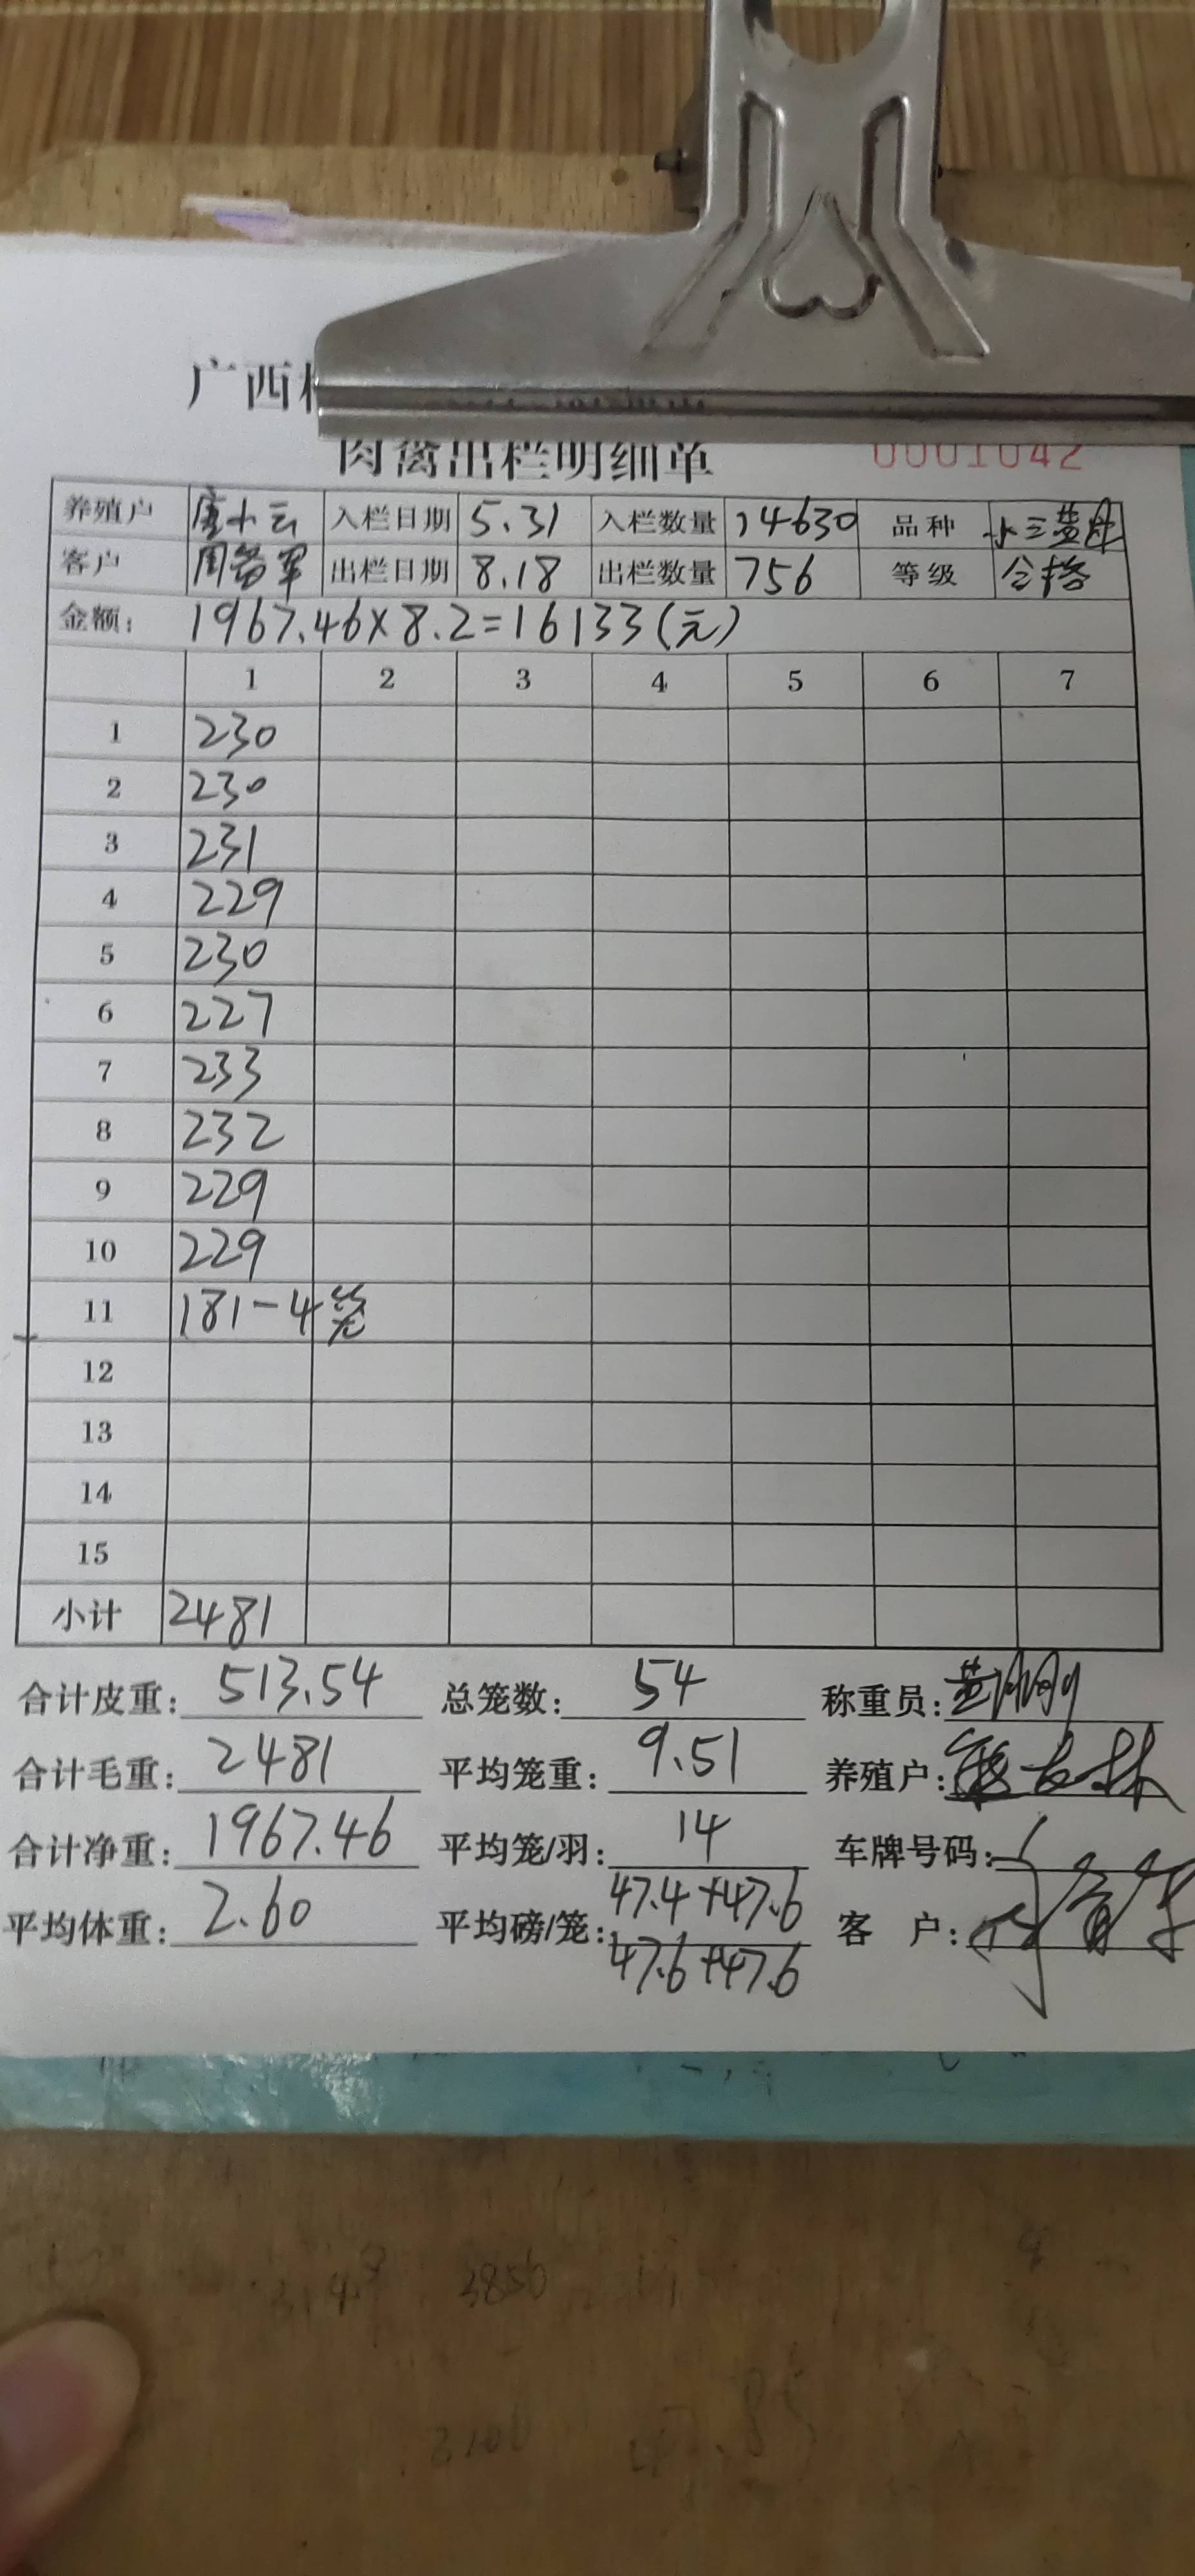 广西
肉禽出栏明细单 0001042
养殖户 唐小云 入栏日期 5.31 入栏数量 14630 品种
客户 周富军 出栏日期 8.18 出栏数量 756 等级 合格
金额: 1967.46×8.2=16133(元)
1 2 3 4 5 6 7
1 230
2 230
3 231
4 229
5 230
6 227
7 233
8 232
9 229
10 229
11 181-4笼
12
13
14
15
小计 2481
合计皮重: 513.54 总笼数: 54 称重员:
合计毛重: 2481 平均笼重: 9.51 养殖户:
合计净重: 1967.46 平均笼/羽: 14 车牌号码:
平均体重: 2.60 平均磅/笼: 47.4+47.6 客 户:
47.6+47.6
3850